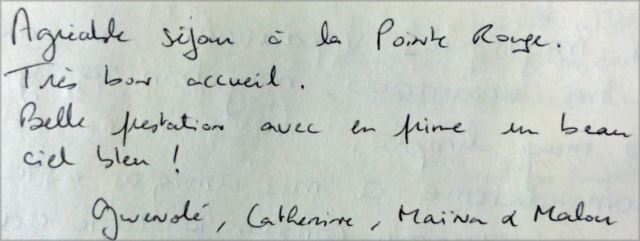 Agréable séjour à la Pointe Rouge.
Très bon accueil.
Belle prestation avec en prime un beau
ciel bleu !
Gwenolé, Catherine, Maïwa & Malou